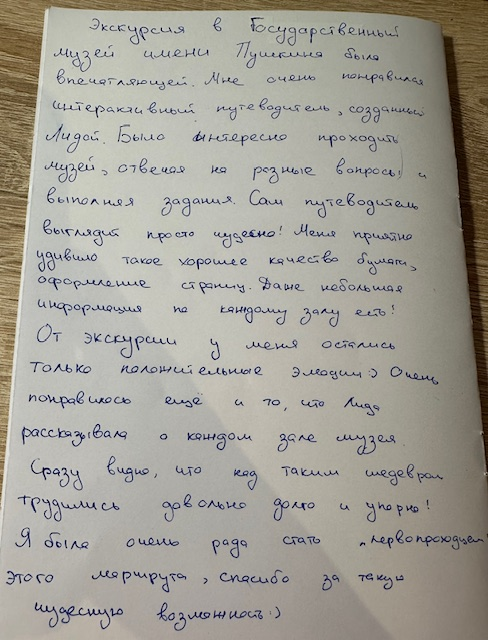 Экскурсия в Государственный
музей имени Пушкина была
впечатляющей. Мне очень понравился
интерактивный путеводитель, созданный
Лидой. Было интересно проходить
музей, отвечая на разные вопросы и
выполняя задания. Сам путеводитель
выглядит просто чудесно! Меня приятно
удивило такое хорошее качество бумаги,
оформление страниц. Даже небольшая
информация по каждому залу есть!
От экскурсии у меня остались
только положительные эмоции:) Очень
понравилось ещё и то, что Лида
рассказывала о каждом зале музея.
Сразу видно, что над таким шедевром
трудились довольно долго и упорно!
Я была очень рада стать „первопроходцем"
этого маршрута, спасибо за такую
чудесную возможность:)